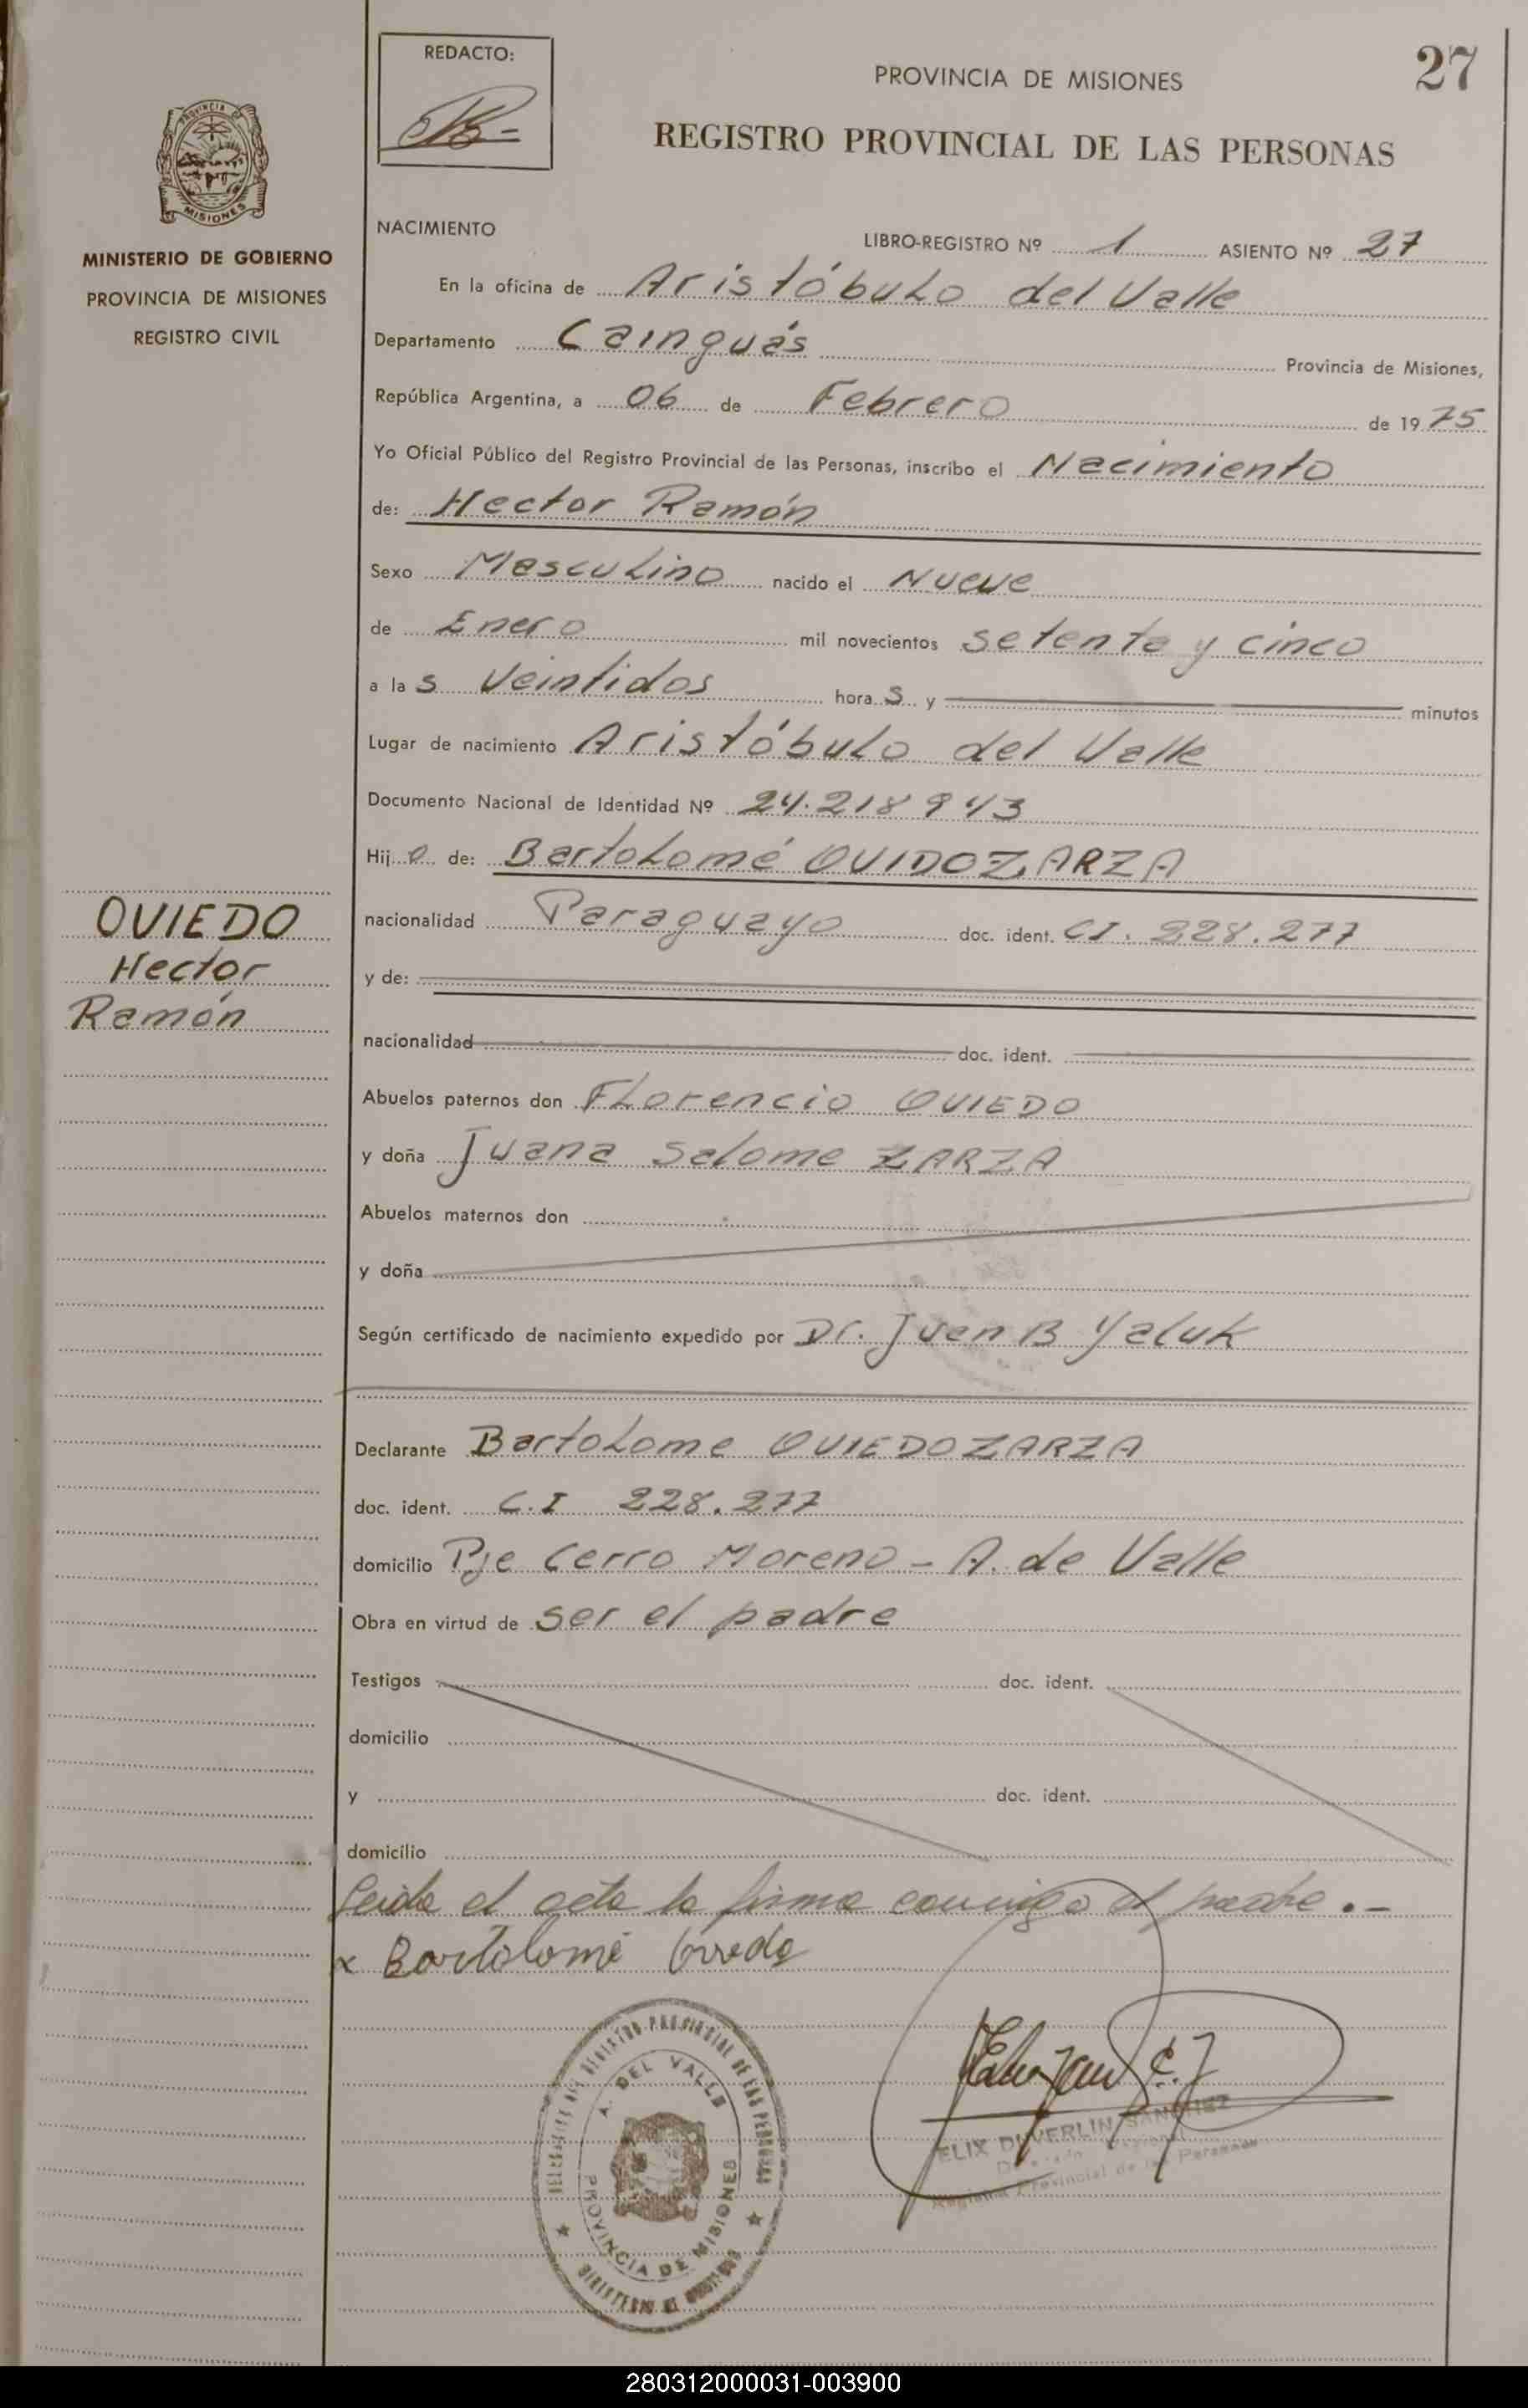 REDACTO:
27
PROVINCIA DE MISIONES
REGISTRO PROVINCIAL DE LAS PERSONAS
MISIONES
MINISTERIO DE GOBIERNO
PROVINCIA DE MISIONES
REGISTRO CIVIL
NACIMIENTO
LIBRO-REGISTRO Nº 1 ASIENTO Nº 27
En la oficina de Aristóbulo del Valle
Departamento Cainguás Provincia de Misiones,
República Argentina, a 06 de Febrero de 1975
Yo Oficial Público del Registro Provincial de las Personas, inscribo el Nacimiento
de: Hector Ramón
Sexo Masculino nacido el Nueve
de Enero mil novecientos setenta y cinco
a las Veintidos horas y minutos
Lugar de nacimiento Aristóbulo del Valle
Documento Nacional de Identidad Nº 24.218943
Hijo de: Bartolomé OVIDOZARZA
OVIEDO
Hector
Ramón
nacionalidad Paraguayo doc. ident. CI. 228.277
y de:
nacionalidad doc. ident.
Abuelos paternos don Florencio OVIEDO
y doña Juana Salome ZARZA
Abuelos maternos don
y doña
Según certificado de nacimiento expedido por Dr. Juan B Yaluk
Declarante Bartolome OVIEDOZARZA
doc. ident. C.I 228.277
domicilio Pje Cerro Moreno - A. de Valle
Obra en virtud de ser el padre
Testigos doc. ident.
domicilio
y doc. ident.
domicilio
Leida el acta la firma conmigo el padre.-
x Bartolomé Oviedo
REGISTRO PROVINCIAL DE LAS PERSONAS
A. DEL VALLE
PROVINCIA DE MISIONES
ELIX DUVERLIN SANCHEZ
Registro Provincial de las Personas
280312000031-003900